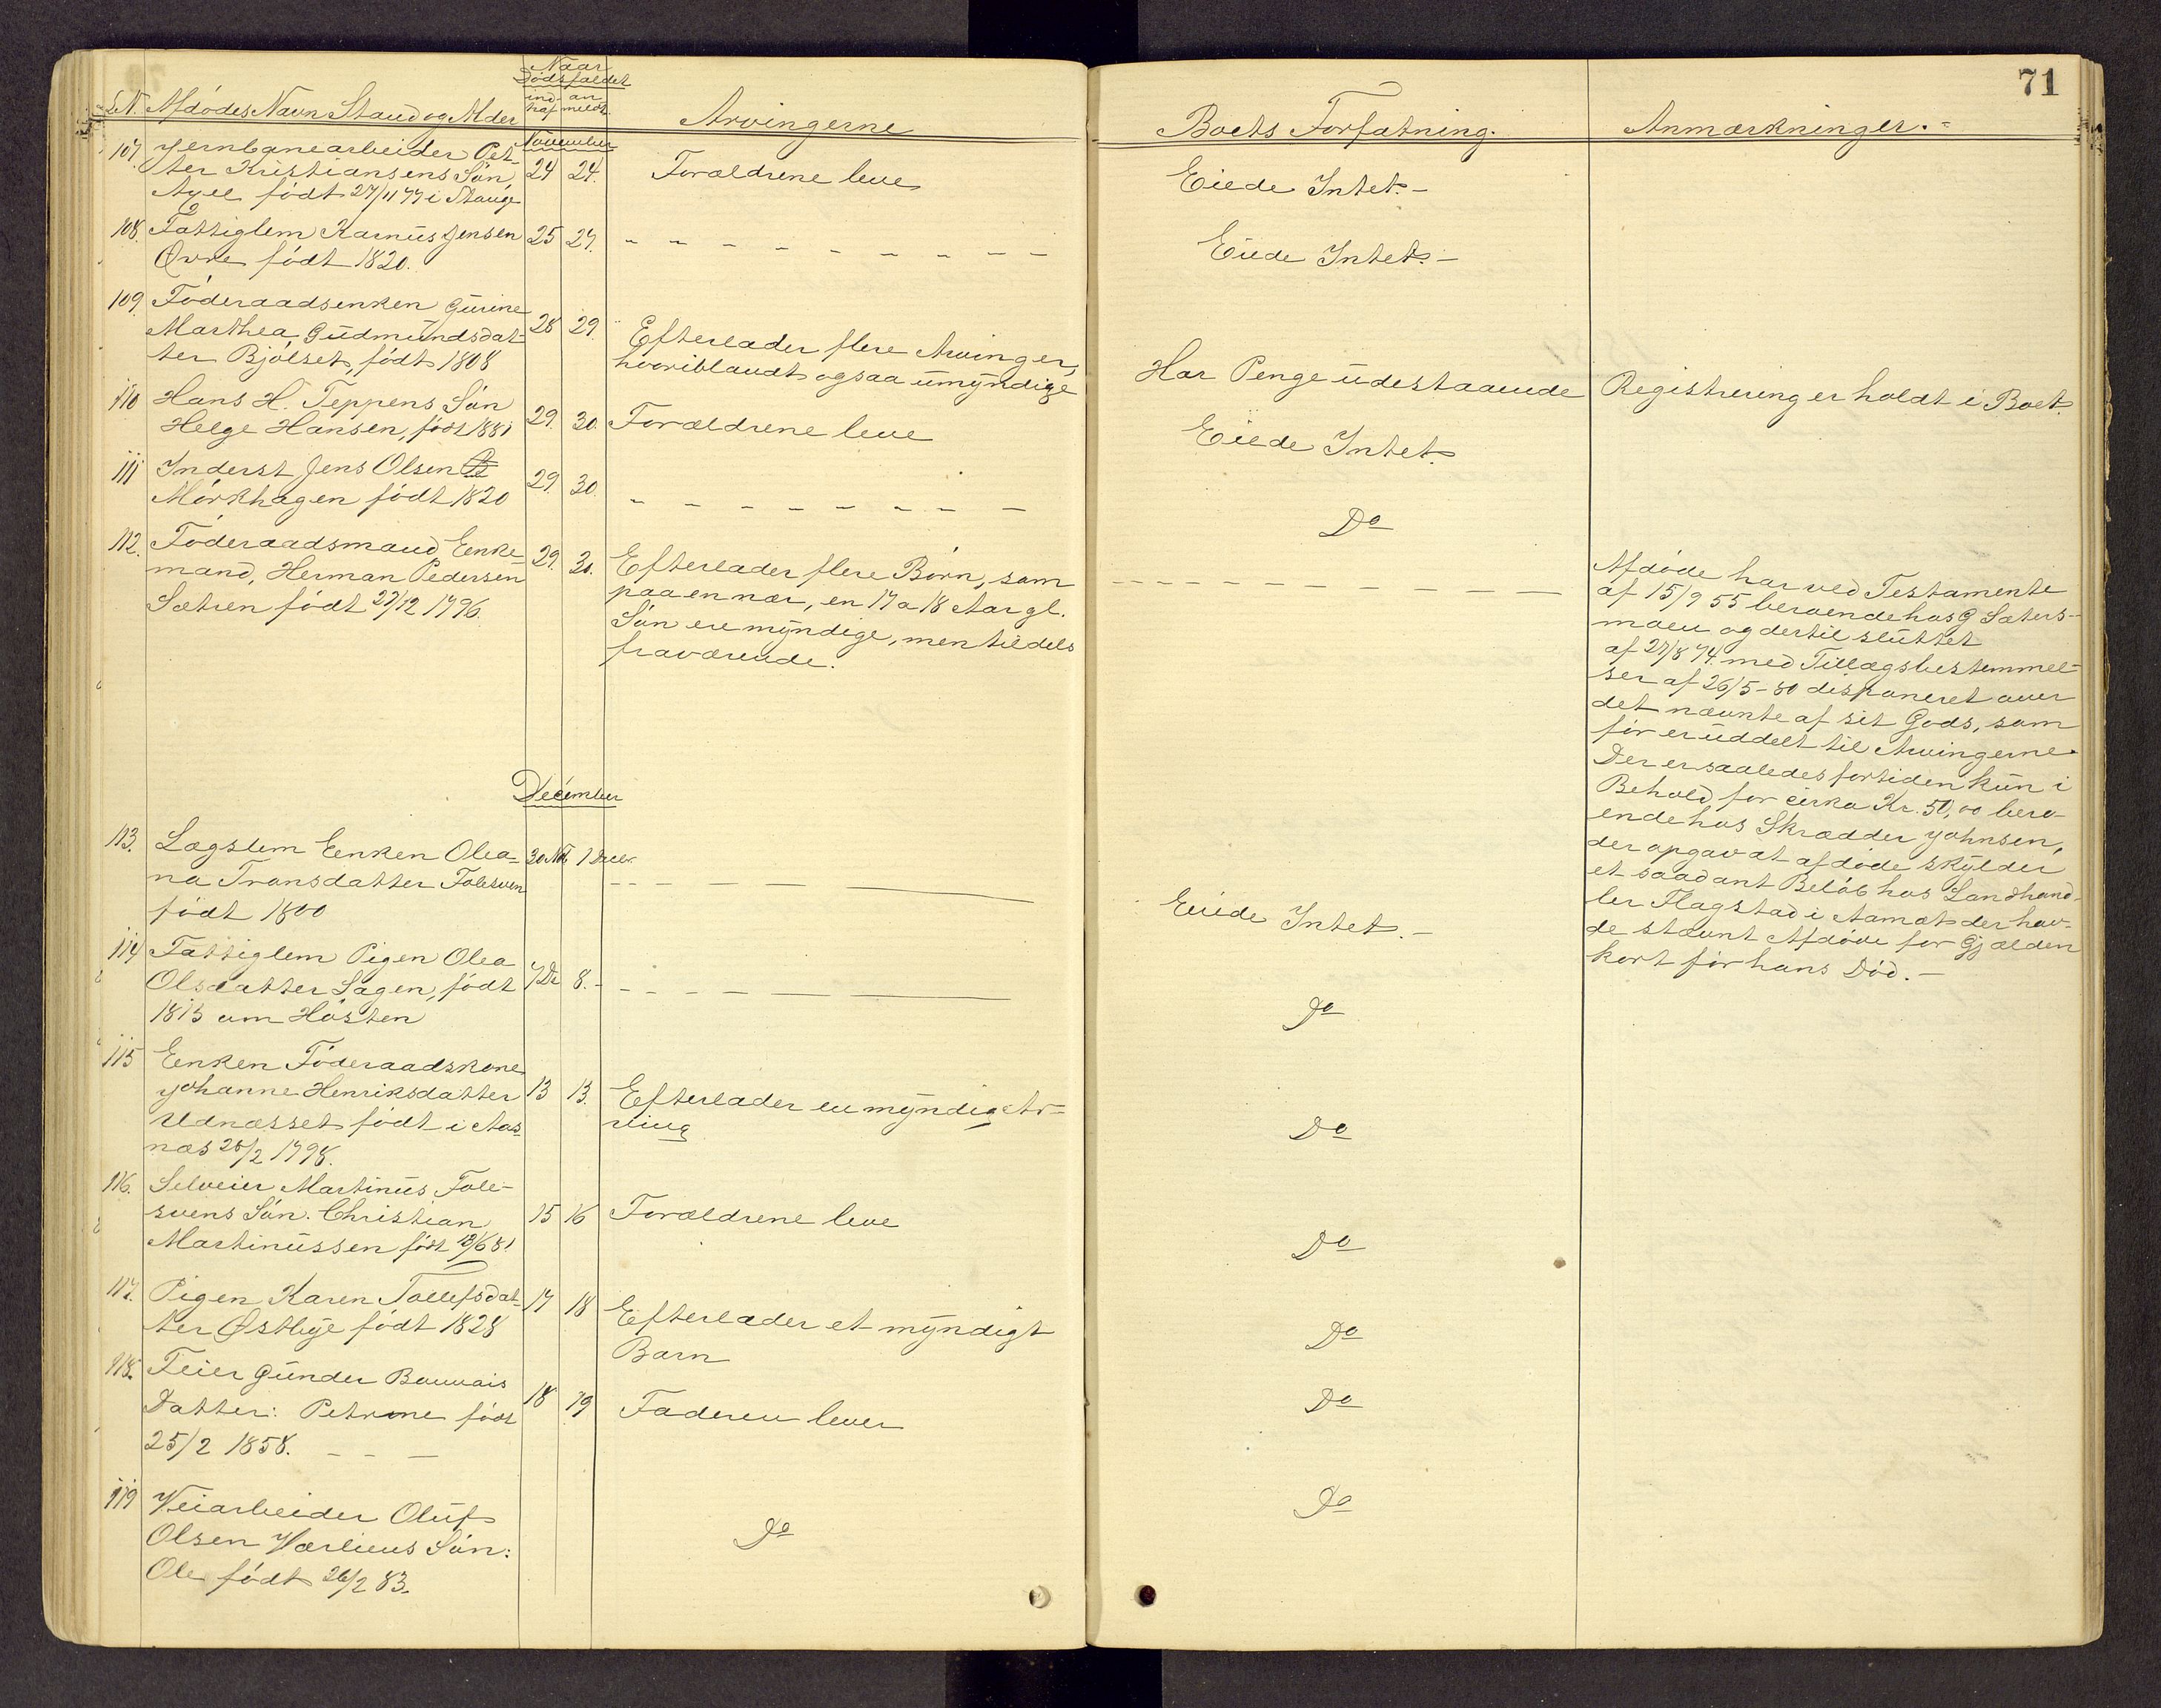 71
Naar
Dødsfaldet
ind- an
traf meldt
L.N. Afdødes Navn Stand og Alder Arvingerne Boets Forfatning. Anmærkninger.-
November
107. Jernbanearbeider Pet-
ter Kristiansens Søn 24 24. Forældrene leve Eiede Intet.-
Axel født 27/11 77 i Stange
108. Fattiglem Karnus Jensen 25 27. - - - - - - - - - Eiede Intet.-
Øvre født 1820.
109. Føderaadsenken Gurine
Marthea Gudmundsdat- 28 29. Efterlader flere Arvinger,
ter Bjølset, født 1808 hvoriblandt ogsaa umyndige Har Penge udestaaende Registrering er holdt i Boet
110 Hans H. Teppens Søn
Helge Hansen, født 1881 29. 30. Forældrene leve Eiede Intet.
111 Inderst Jens Olsen
Mørkhagen født 1820 29. 30. - - - - - - - - Do
112. Føderaadsmand Enke-
mand, Herman Pedersen 29. 30. Efterlader flere Børn, som
Sætren født 27/12 1796. paa en nær, en 17 a 18 Aar gl.
Søn ere myndige, men tildels
fraværende.
Afdøde har ved Testamente
af 15/9 55 beroende hos G Sæters-
moen og dertil sluttet
af 27/8 74. med Tillægsbestemmel-
ser af 26/5-80 disponeret over
det nævnte af sit Gods, som
før er uddelt til Arvingerne.
Der er saaledes fortiden kun i
Behold for cirka Kr. 50,00 bero-
ende hos Skrædder Johnsen,
der opgav at afdøde skylder
et saadant Beløb hos Landhand-
ler Flagstad i Aamot der hav-
de stævnt Afdøde for Gjælden
kort før hans Død.-
December
113. Lægslem Enken Olea- 30 Nov 1 Decbr.
na Transdatter Folesven - - - - Eiede Intet.-
født 1800
114 Fattiglem Pigen Olea
Olsdatter Sagen, født 7 De 8.- - - - - Do
1813 om Høsten
115 Enken Føderaadskone
Johanne Henriksdatter 13 13. Efterlader en myndig Ar-
Udnæsset født i Aas- ving Do
næs 28/2 1798.
116. Selveier Martinus Fole-
svens Søn. Christian 15 16 Forældrene leve Do
Martinussen født 18/6 81
117. Pigen Karen Tollefsdat- 17 18 Efterlader et myndigt
ter Østbye født 1828 Barn Do
118. Feier Gunder
Datter: Petrine født 18 19 Faderen lever Do
25/2 1858. - - -
119 Veiarbeider Oluf
Olsen Værliens Søn: Do Do
Ole født 26/2 83.